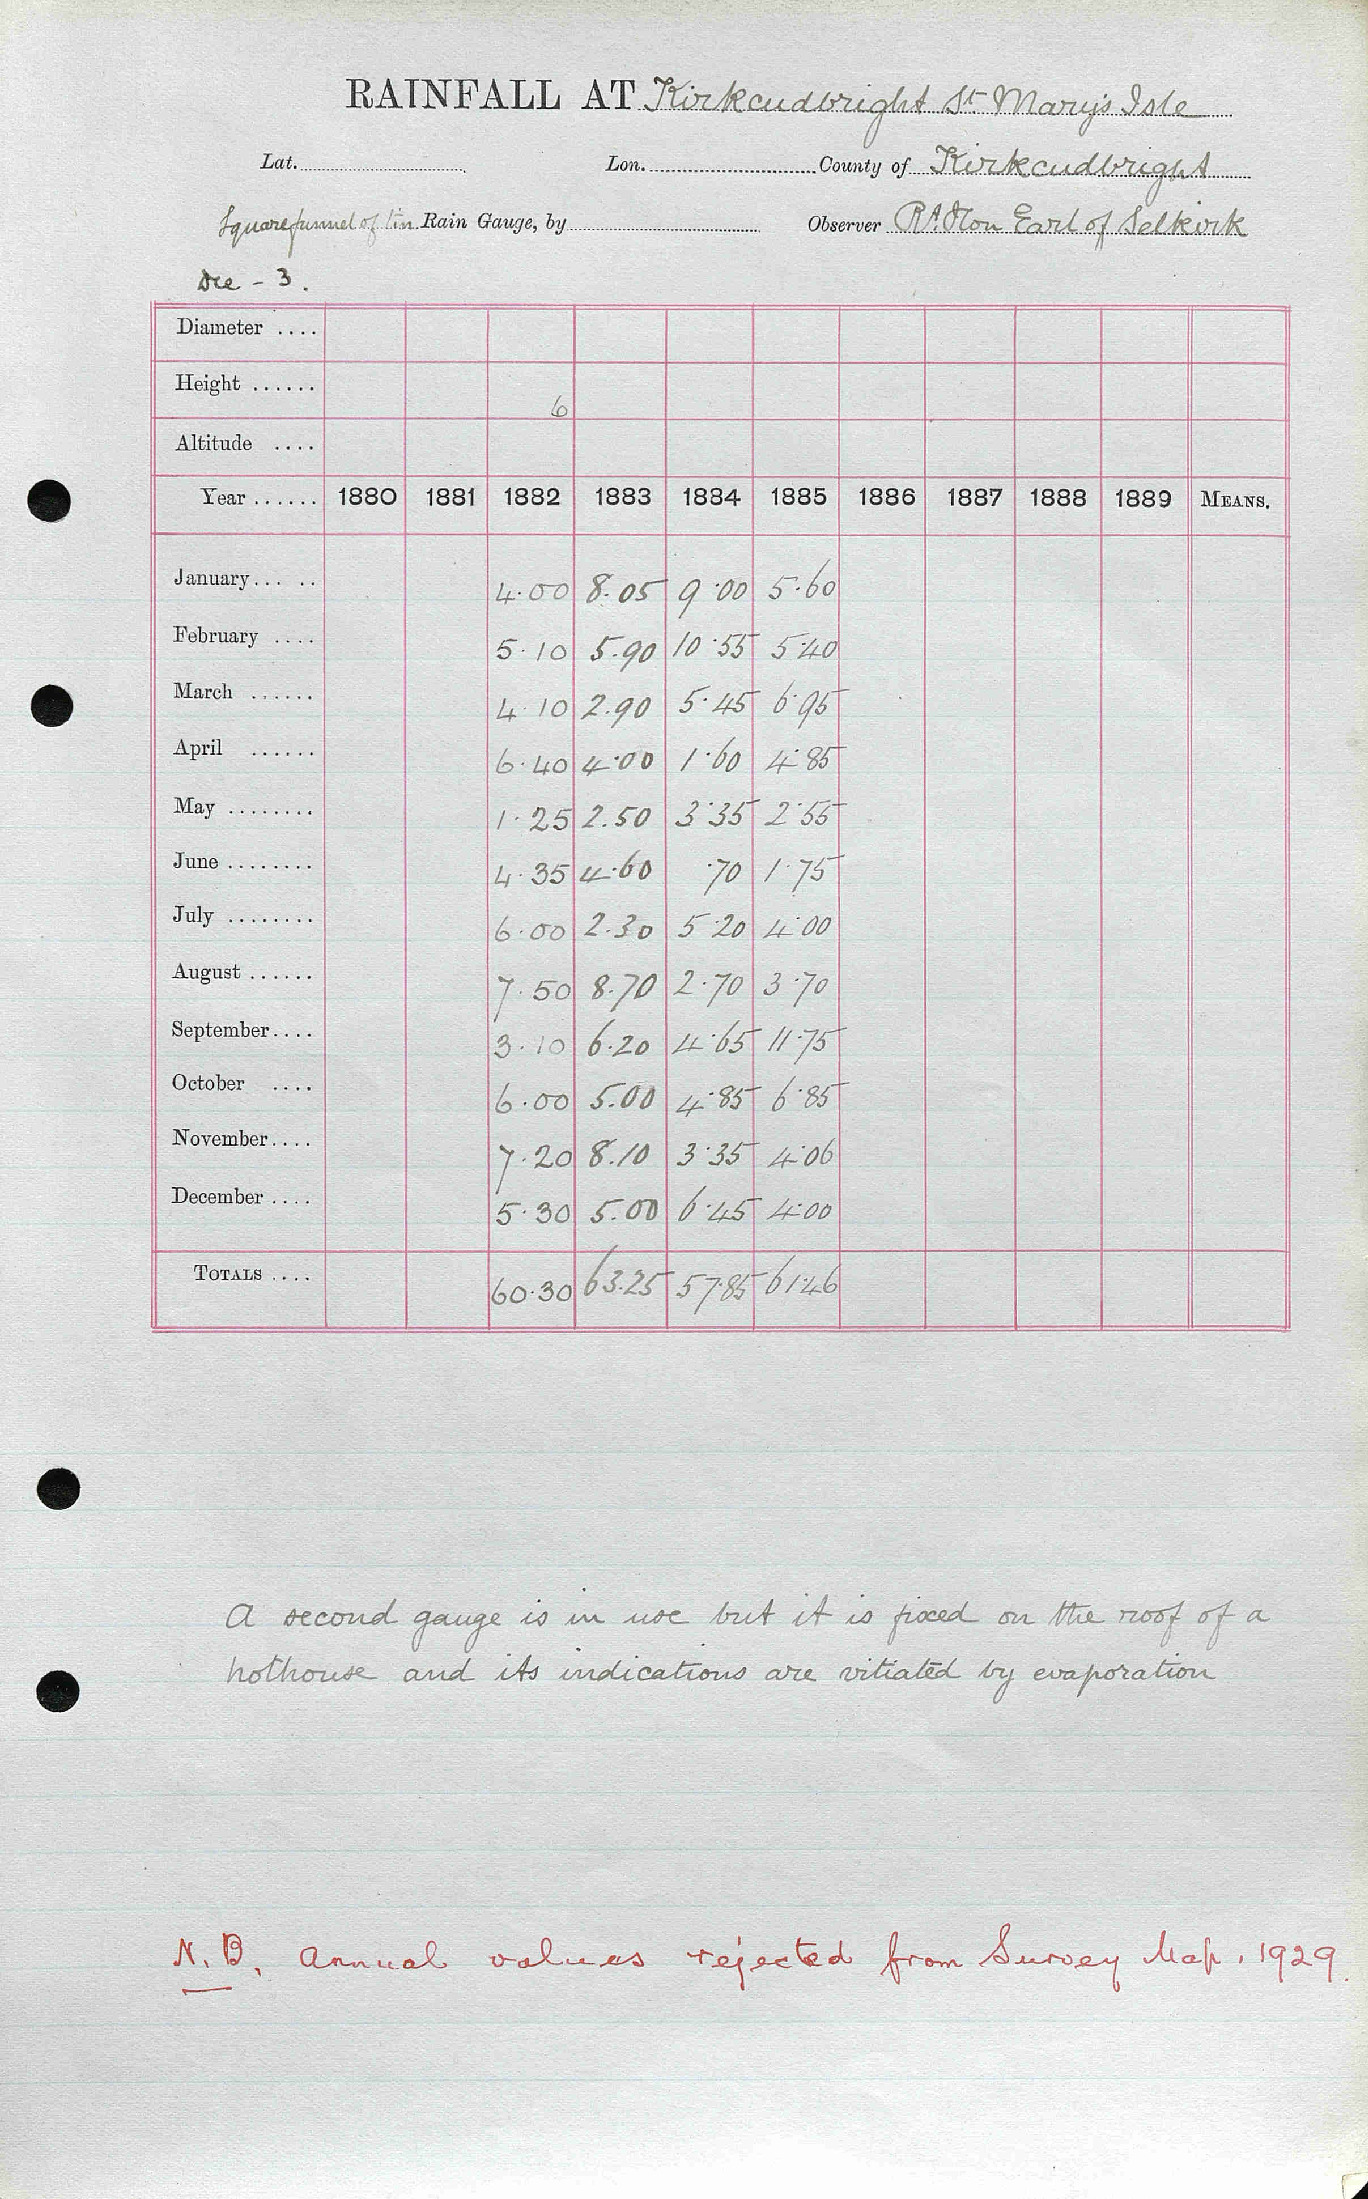 RAINFALL AT Kirkcudbright St Mary's Isle
Lat. Lon. County of Kirkcudbright
Square funnel of tin Rain Gauge, by Observer Rt. Hon Earl of Selkirk
Dee - 3.
Diameter ....
Height ...... 6
Altitude ....
Year ...... 1880 1881 1882 1883 1884 1885 1886 1887 1888 1889 MEANS.
January... .. 4.00 8.05 9.00 5.60
February .... 5.10 5.90 10.55 5.40
March ...... 4.10 2.90 5.45 6.95
April ...... 6.40 4.00 1.60 4.85
May ........ 1.25 2.50 3.35 2.55
June ........ 4.35 4.60 .70 1.75
July ........ 6.00 2.30 5.20 4.00
August ...... 7.50 8.70 2.70 3.70
September.... 3.10 6.20 4.65 11.75
October .... 6.00 5.00 4.85 6.85
November.... 7.20 8.10 3.35 4.06
December .... 5.30 5.00 6.45 4.00
TOTALS .... 60.30 63.25 57.85 61.46
A second gauge is in use but it is fixed on the roof of a
hothouse and its indications are vitiated by evaporation
N.B. Annual values rejected from Survey Map. 1929.